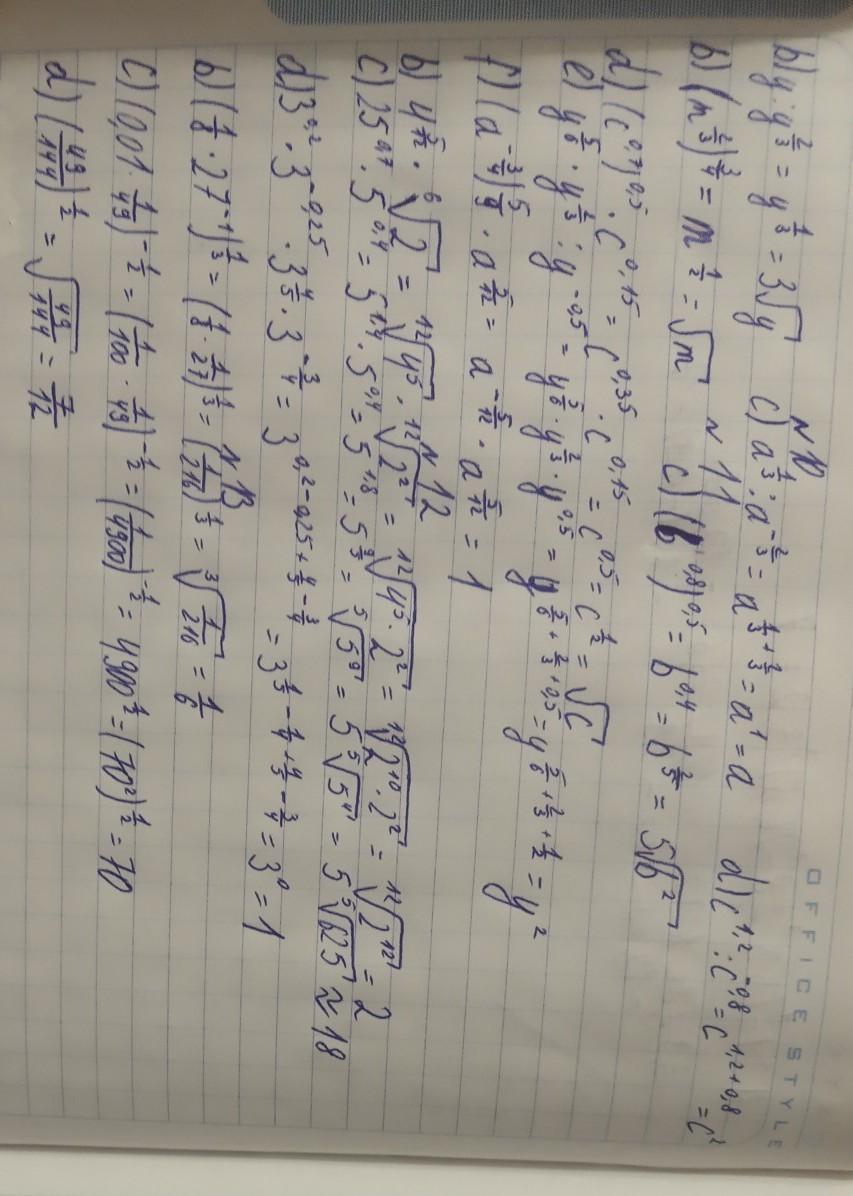 OFFICE STYLE
N 10
b) y : y^{2/3} = y^{1/3} = 3√y c) a^{1/3} : a^{-2/3} = a^{1/3 + 2/3} = a^1 = a d) c^{1,2} : c^{-0,8} = c^{1,2+0,8} = c^2
N 11
b) (m^{2/3})^{3/4} = m^{1/2} = √m c) (b^{0,8})^{0,5} = b^{0,4} = b^{2/5} = 5√b^2
d) (c^{0,7})^{0,5} · c^{0,15} = c^{0,35} · c^{0,15} = c^{0,5} = c^{1/2} = √c
e) y^{5/6} · y^{2/3} : y^{-0,5} = y^{5/6} · y^{2/3} · y^{0,5} = y^{5/6 + 2/3 + 0,5} = y^{5/6 + 2/3 + 1/2} = y^2
f) (a^{-3/4})^{5/9} · a^{5/12} = a^{-5/12} · a^{5/12} = 1
N 12
b) 4^{5/12} · ⁶√2 = ¹²√4^5 · ¹²√2^2 = ¹²√4^5 · 2^2 = ¹²√2^{10} · 2^2 = ¹²√2^{12} = 2
c) 25^{0,7} · 5^{0,4} = 5^{1,4} · 5^{0,4} = 5^{1,8} = 5^{9/5} = ⁵√5^9 = 5 ⁵√5^4 = 5 ⁵√625 ≈ 18
d) 3^{0,2} · 3^{-0,25} · 3^{4/5} · 3^{-3/4} = 3^{0,2 - 0,25 + 4/5 - 3/4} = 3^{1/5 - 1/4 + 4/5 - 3/4} = 3^0 = 1
N 13
b) (1/8 · 27^{-1})^{1/3} = (1/8 · 1/27)^{1/3} = (1/216)^{1/3} = ³√1/216 = 1/6
c) (0,01 · 1/49)^{-1/2} = (1/100 · 1/49)^{-1/2} = (1/4900)^{-1/2} = 4900^{1/2} = (70^2)^{1/2} = 70
d) (49/144)^{1/2} = √49/144 = 7/12